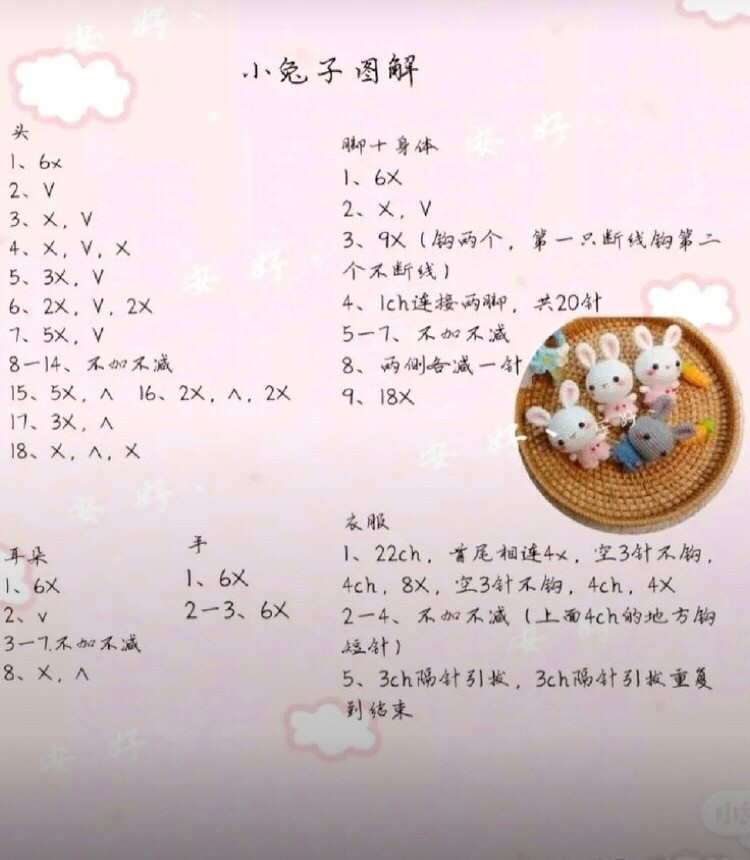 小兔子图解
头
1、6x
2、V
3、X，V
4、X，V，X
5、3X，V
6、2X，V，2X
7、5X，V
8—14、不加不减
15、5X，∧ 16、2X，∧，2X
17、3X，∧
18、X，∧，X
脚+身体
1、6X
2、X，V
3、9X（钩两个，第一只断线钩第二
个不断线）
4、1ch连接两脚，共20针
5—7、不加不减
8、两侧各减一针
9、18X
耳朵
1、6X
2、v
3—7.不加不减
8、X，∧
手
1、6X
2—3、6X
衣服
1、22ch，首尾相连4x，空3针不钩，
4ch，8X，空3针不钩，4ch，4X
2—4、不加不减（上面4ch的地方钩
短针）
5、3ch隔针引拔，3ch隔针引拔重复
到结束
安好、
安好、
安好、
安好、
安好、
安好、
安好
安好
小